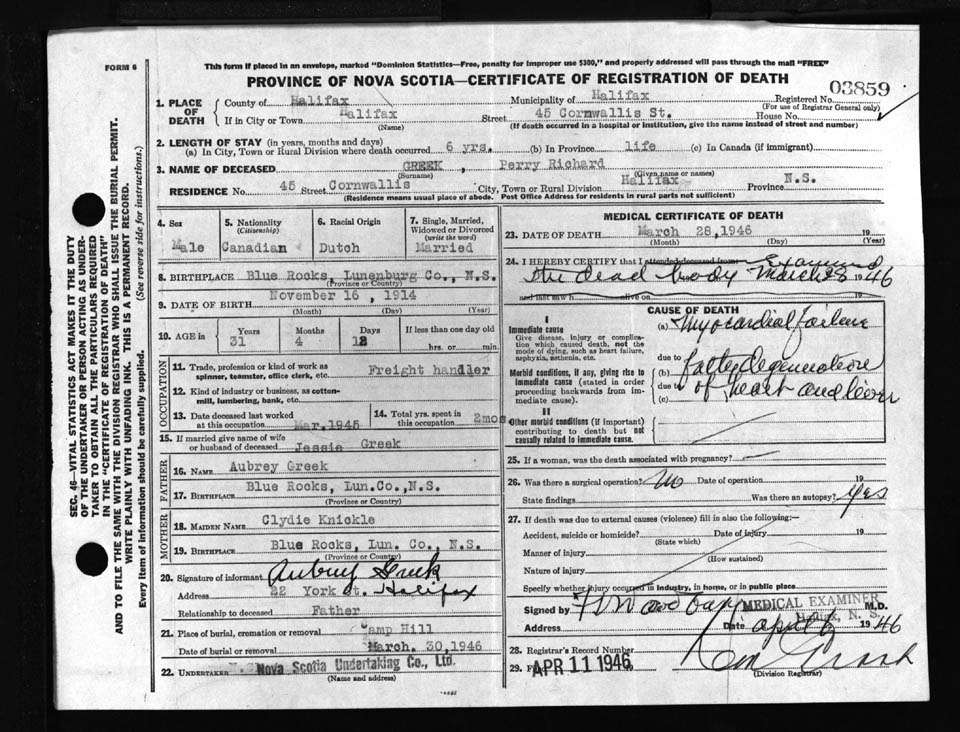 FORM 6
This form if placed in an envelope, marked "Dominion Statistics—Free, penalty for improper use $300," and properly addressed will pass through the mail "FREE"
PROVINCE OF NOVA SCOTIA—CERTIFICATE OF REGISTRATION OF DEATH
1. PLACE OF DEATH County of Halifax Municipality of Halifax Registered No. 03859
(For use of Registrar General only)
If in City or Town Halifax Street 45 Cornwallis St. House No.
(Name) (If death occurred in a hospital or institution, give the name instead of street and number)
2. LENGTH OF STAY (in years, months and days)
(a) In City, Town or Rural Division where death occurred 6 yrs. (b) In Province life (c) In Canada (if immigrant)
3. NAME OF DECEASED GREEK , Perry Richard
(Surname) (Given name or names)
RESIDENCE No. 45 Street Cornwallis City, Town or Rural Division Halifax Province N.S.
(Residence means usual place of abode. Post Office Address for residents in rural parts not sufficient)
4. Sex Male
5. Nationality (Citizenship) Canadian
6. Racial Origin Dutch
7. Single, Married, Widowed or Divorced (write the word) Married
8. BIRTHPLACE Blue Rocks, Lunenburg Co., N.S.
(Province or Country)
9. DATE OF BIRTH November 16 , 1914
(Month) (Day) (Year)
10. AGE in Years 31 Months 4 Days 12 If less than one day old hrs. or min.
OCCUPATION
11. Trade, profession or kind of work as spinner, teamster, office clerk, etc. Freight handler
12. Kind of industry or business, as cotton-mill, lumbering, bank, etc.
13. Date deceased last worked at this occupation Mar. 1945
14. Total yrs. spent in this occupation 2mos
15. If married give name of wife or husband of deceased Jessie Greek
FATHER
16. NAME Aubrey Greek
17. BIRTHPLACE Blue Rocks, Lun.Co.,N.S.
(Province or Country)
MOTHER
18. MAIDEN NAME Clydie Knickle
19. BIRTHPLACE Blue Rocks, Lun. Co., N.S.
(Province or Country)
20. Signature of informant Aubrey Greek
Address 22 York St. Halifax
Relationship to deceased Father
21. Place of burial, cremation or removal Camp Hill
Date of burial or removal March. 30,1946
22. UNDERTAKER Nova Scotia Undertaking Co., Ltd.
(Name and address)
MEDICAL CERTIFICATE OF DEATH
23. DATE OF DEATH March 28,1946 19
(Month) (Day) (Year)
24. I HEREBY CERTIFY that I attended deceased from Examined
the dead body March 28 1946
and last saw h alive on 19
CAUSE OF DEATH
I
Immediate cause
Give disease, injury or complication which caused death, not the mode of dying, such as heart failure, asphyxia, asthenia, etc.
(a) Myocardial failure
due to
Morbid conditions, if any, giving rise to immediate cause (stated in order proceeding backwards from immediate cause).
(b) fatty degeneration
due to of heart and liver
(c)
II
Other morbid conditions (if important) contributing to death but not causally related to immediate cause.
25. If a woman, was the death associated with pregnancy?
26. Was there a surgical operation? No Date of operation 19
State findings Was there an autopsy? Yes
27. If death was due to external causes (violence) fill in also the following:—
Accident, suicide or homicide? Date of injury 19
(State which)
Manner of injury
(How sustained)
Nature of injury
Specify whether injury occurred in industry, in home, or in public place
Signed by MEDICAL EXAMINER M.D.
Halifax, N. S.
Address Date April 6 1946
28. Registrar's Record No.
29. APR 11 1946
(Division Registrar)
SEC. 46—VITAL STATISTICS ACT MAKES IT THE DUTY
OF THE UNDERTAKER OR PERSON ACTING AS UNDERTAKER TO OBTAIN ALL THE PARTICULARS REQUIRED
IN THE "CERTIFICATE OF REGISTRATION OF DEATH"
AND TO FILE THE SAME WITH THE DIVISION REGISTRAR WHO SHALL ISSUE THE BURIAL PERMIT.
WRITE PLAINLY WITH UNFADING INK. THIS IS A PERMANENT RECORD.
Every item of information should be carefully supplied. (See reverse side for instructions.)